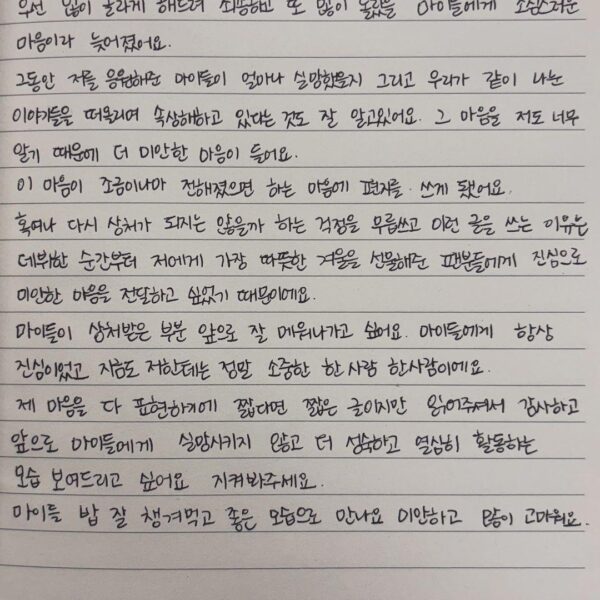 우선 많이 놀라게 해드려 죄송하고 또 많이 놀랐을 마이들에게 조심스러운
마음이라 늦어졌어요.
그동안 저를 응원해준 마이들이 얼마나 실망했을지 그리고 우리가 같이 나눈
이야기들을 떠올리며 속상해하고 있다는 것도 잘 알고있어요. 그 마음을 저도 너무
알기 때문에 더 미안한 마음이 들어요.
이 마음이 조금이나마 전해졌으면 하는 마음에 편지를 쓰게 됐어요.
혹여나 다시 상처가 되지는 않을까 하는 걱정을 무릅쓰고 이런 글을 쓰는 이유는
데뷔한 순간부터 저에게 가장 따뜻한 겨울을 선물해준 팬분들에게 진심으로
미안한 마음을 전달하고 싶었기 때문이에요.
마이들이 상처받은 부분 앞으로 잘 메워나가고 싶어요. 마이들에게 항상
진심이었고 지금도 저한테는 정말 소중한 한사람 한사람이에요.
제 마음을 다 표현하기에 짧다면 짧은 글이지만 읽어주셔서 감사하고
앞으로 마이들에게 실망시키지 않고 더 성숙하고 열심히 활동하는
모습 보여드리고 싶어요 지켜봐주세요.
마이들 밥 잘 챙겨먹고 좋은 모습으로 만나요 미안하고 많이 고마워요.